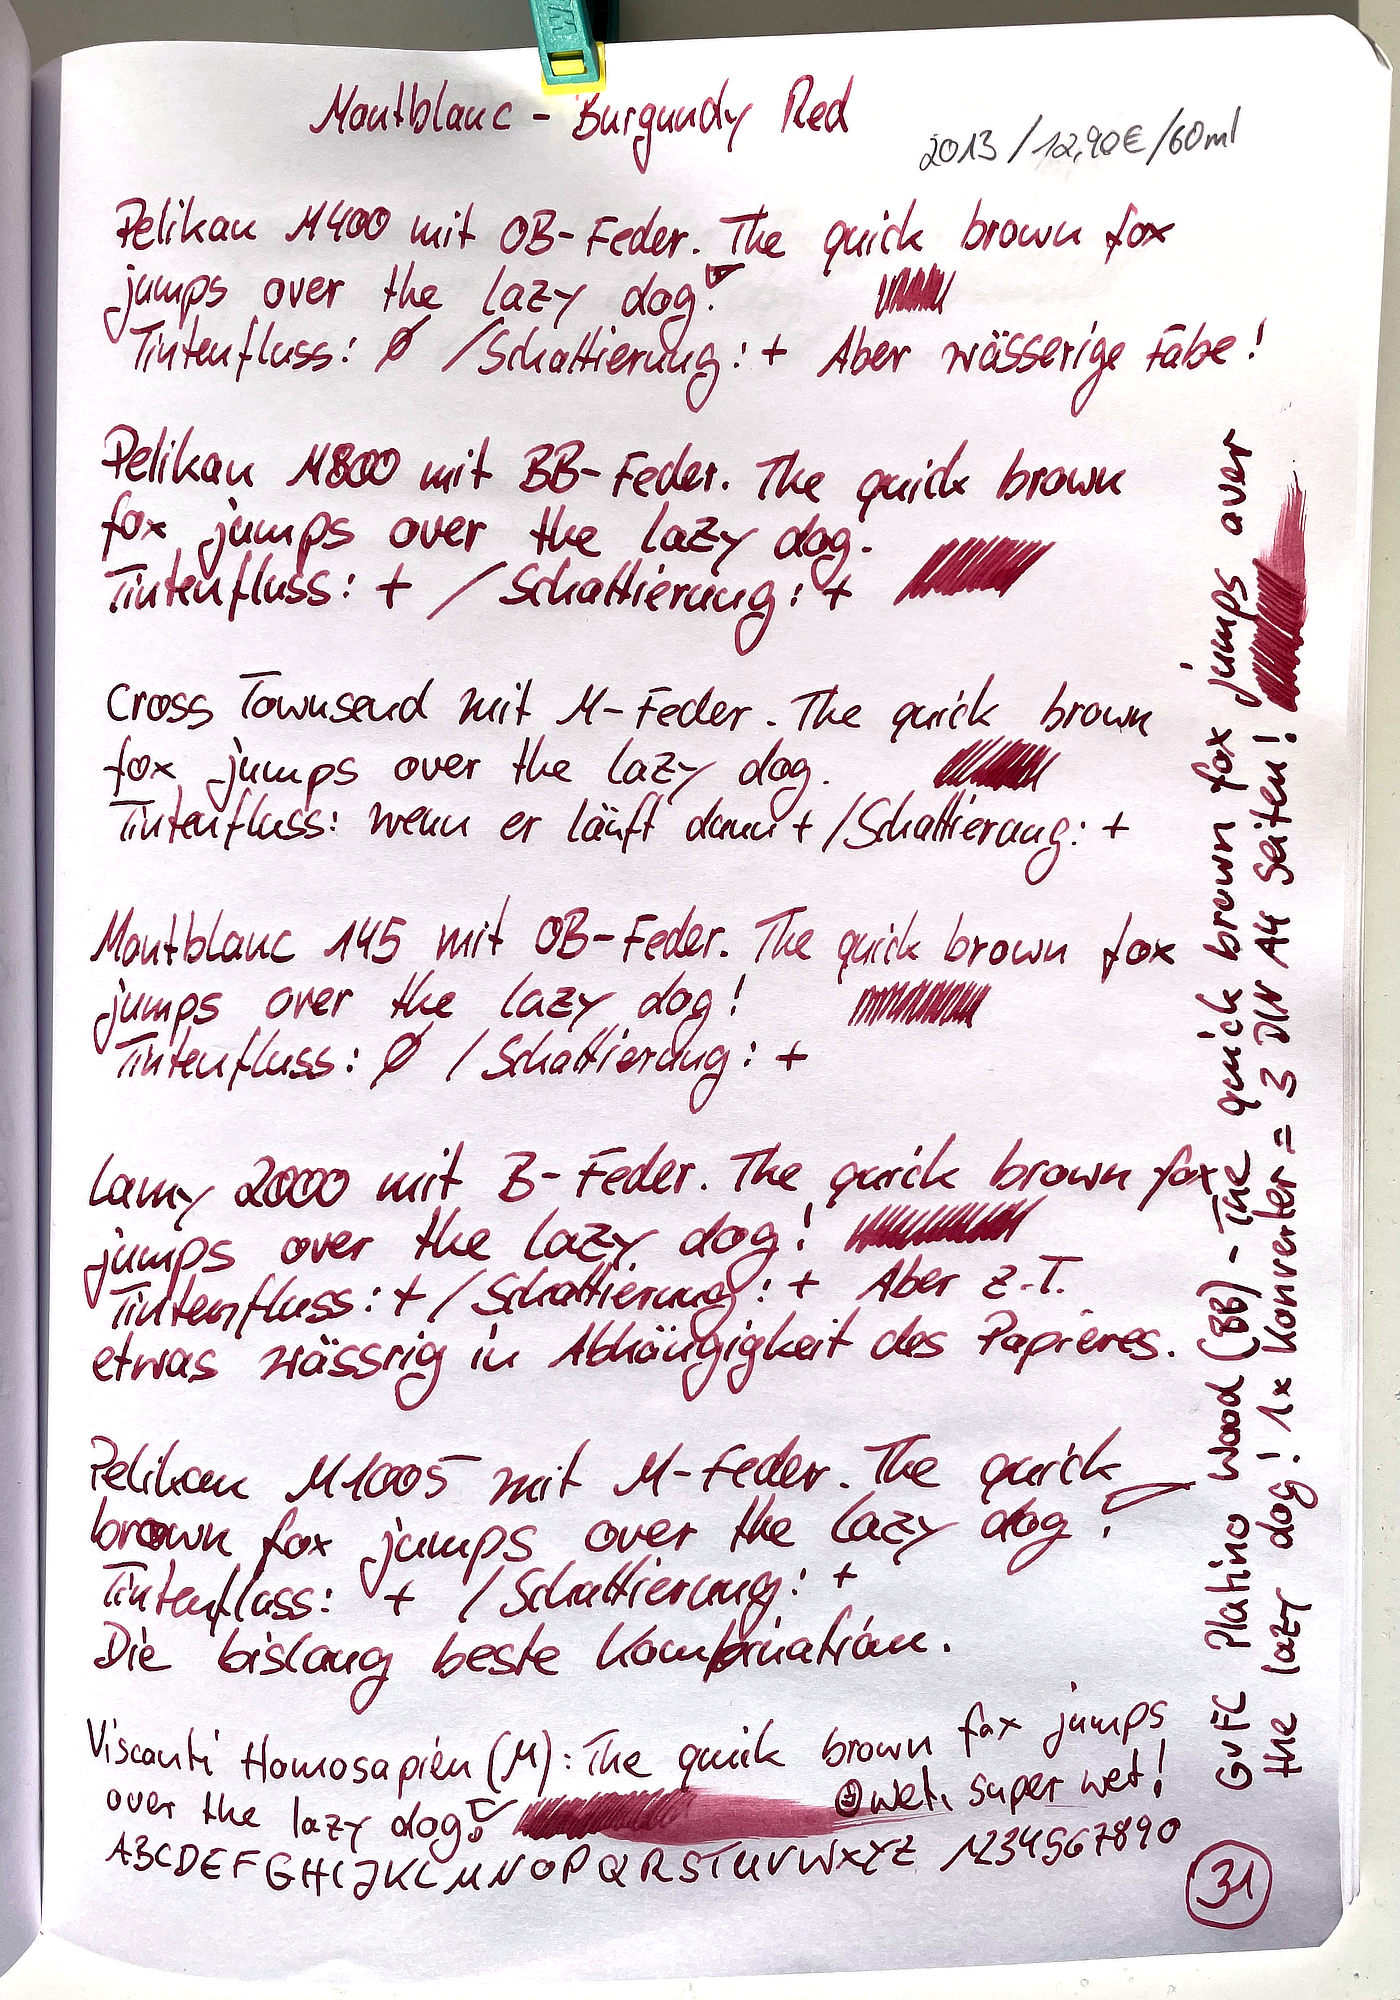 Montblanc - Burgundy Red
2013 / 12,90€ / 60ml
Pelikan M400 mit OB-Feder. The quick brown fox
jumps over the lazy dog!
Tintenfluss: Ø / Schattierung: + Aber wässerige Fabe!
Pelikan M800 mit BB-Feder. The quick brown
fox jumps over the lazy dog.
Tintenfluss: + / Schattierung: +
Cross Townsend mit M-Feder. The quick brown
fox jumps over the lazy dog.
Tintenfluss: wenn er läuft dann + / Schattierung: +
Montblanc 145 mit OB-Feder. The quick brown fox
jumps over the lazy dog!
Tintenfluss: Ø / Schattierung: +
Lamy 2000 mit B-Feder. The quick brown fox
jumps over the lazy dog!
Tintenfluss: + / Schattierung: + Aber z.T.
etwas wässrig in Abhängigkeit des Papieres.
Pelikan M1005 mit M-Feder. The quick
brown fox jumps over the lazy dog!
Tintenfluss: + / Schattierung: +
Die bislang beste Kombination.
Visconti Homosapien (M): The quick brown fox jumps
over the lazy dog! ☺ wet, super wet!
ABCDEFGHIJKLMNOPQRSTUVWXYZ 1234567890
31
GvFC Platino Wood (BB) - The quick brown fox jumps over
the lazy dog! 1x Konverter = 3 DIN A4 Seiten!